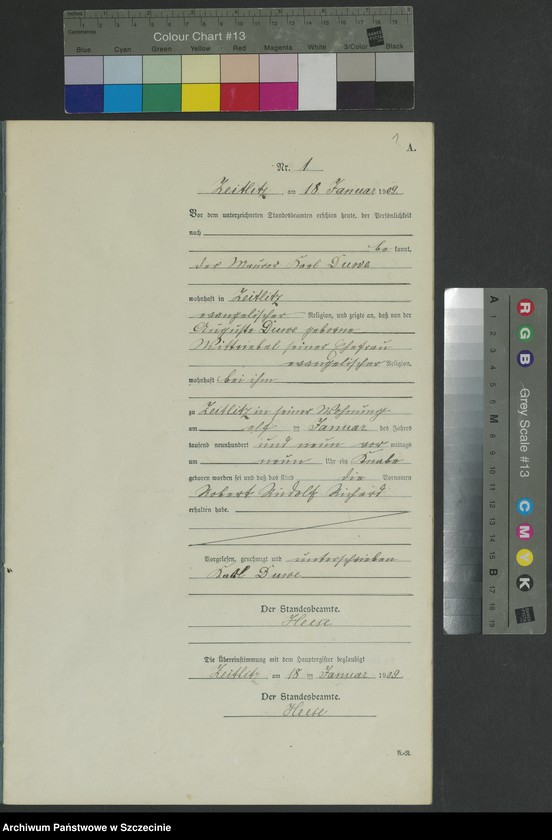 Colour Chart #13
Blue Cyan Green Yellow Red Magenta White 3/Color Black
1
A.
Nr. 1
Zeitlitz am 18 Januar 1909.
Vor dem unterzeichneten Standesbeamten erschien heute, der Persönlichkeit
nach
be kannt,
der Maurer Karl Duwe
wohnhaft in Zeitlitz
evangelischer Religion, und zeigte an, daß von der
Auguste Duwe geborne
seiner Ehefrau
evangelischer Religion,
wohnhaft bei ihm
zu Zeitlitz in seiner Wohnung
am elf ten Januar des Jahres
tausend neunhundert und neun vor mittags
um neun Uhr ein Knabe
geboren worden sei und daß das Kind die Vornamen
Robert Rudolf Richard
erhalten habe.
Vorgelesen, genehmigt und unterschrieben
Karl Duwe
Der Standesbeamte.
Heese
Die Übereinstimmung mit dem Hauptregister beglaubigt
Zeitlitz am 18 ten Januar 1909
Der Standesbeamte.
Heese
Grey Scale #13
R G B C M Y K
A M B
Archiwum Państwowe w Szczecinie